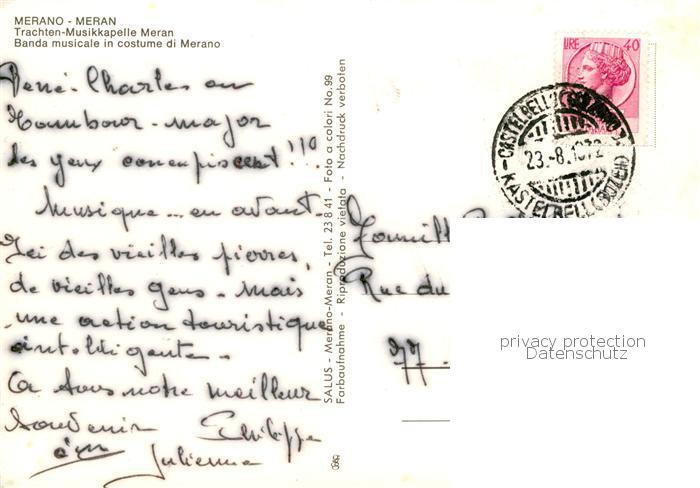 MERANO - MERAN
Trachten-Musikkapelle Meran
Banda musicale in costume di Merano
René-Charles en
Tambour-major
des yeux concupiscent !!!
Musique... en avant.
Ici des vieilles pierres,
de vieilles gens - mais
une action touristique
intelligente.
A tous notre meilleur
souvenir Philippe
Julienne
SALUS - Merano-Meran - Tel. 23 8 41 - Foto a colori No. 99
Farbaufnahme - Riproduzione vietata - Nachdruck verboten
LIRE 40
CASTELBELLO (BOLZANO)
23.-8.1972
KASTELBELL (BOZEN)
Rue du
77
privacy protection
Datenschutz